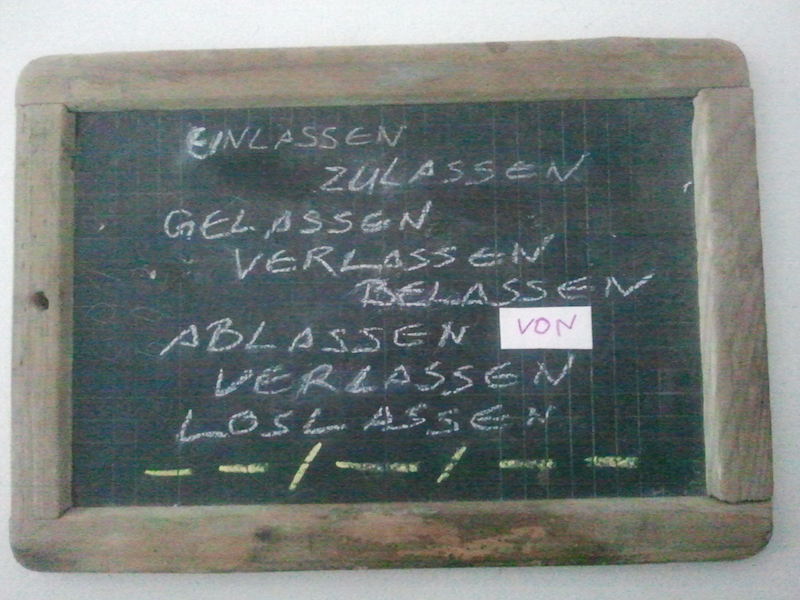 EINLASSEN
ZULASSEN
GELASSEN
VERLASSEN
BELASSEN
ABLASSEN VON
VERLASSEN
LOSLASSEN
– – / – – / – –